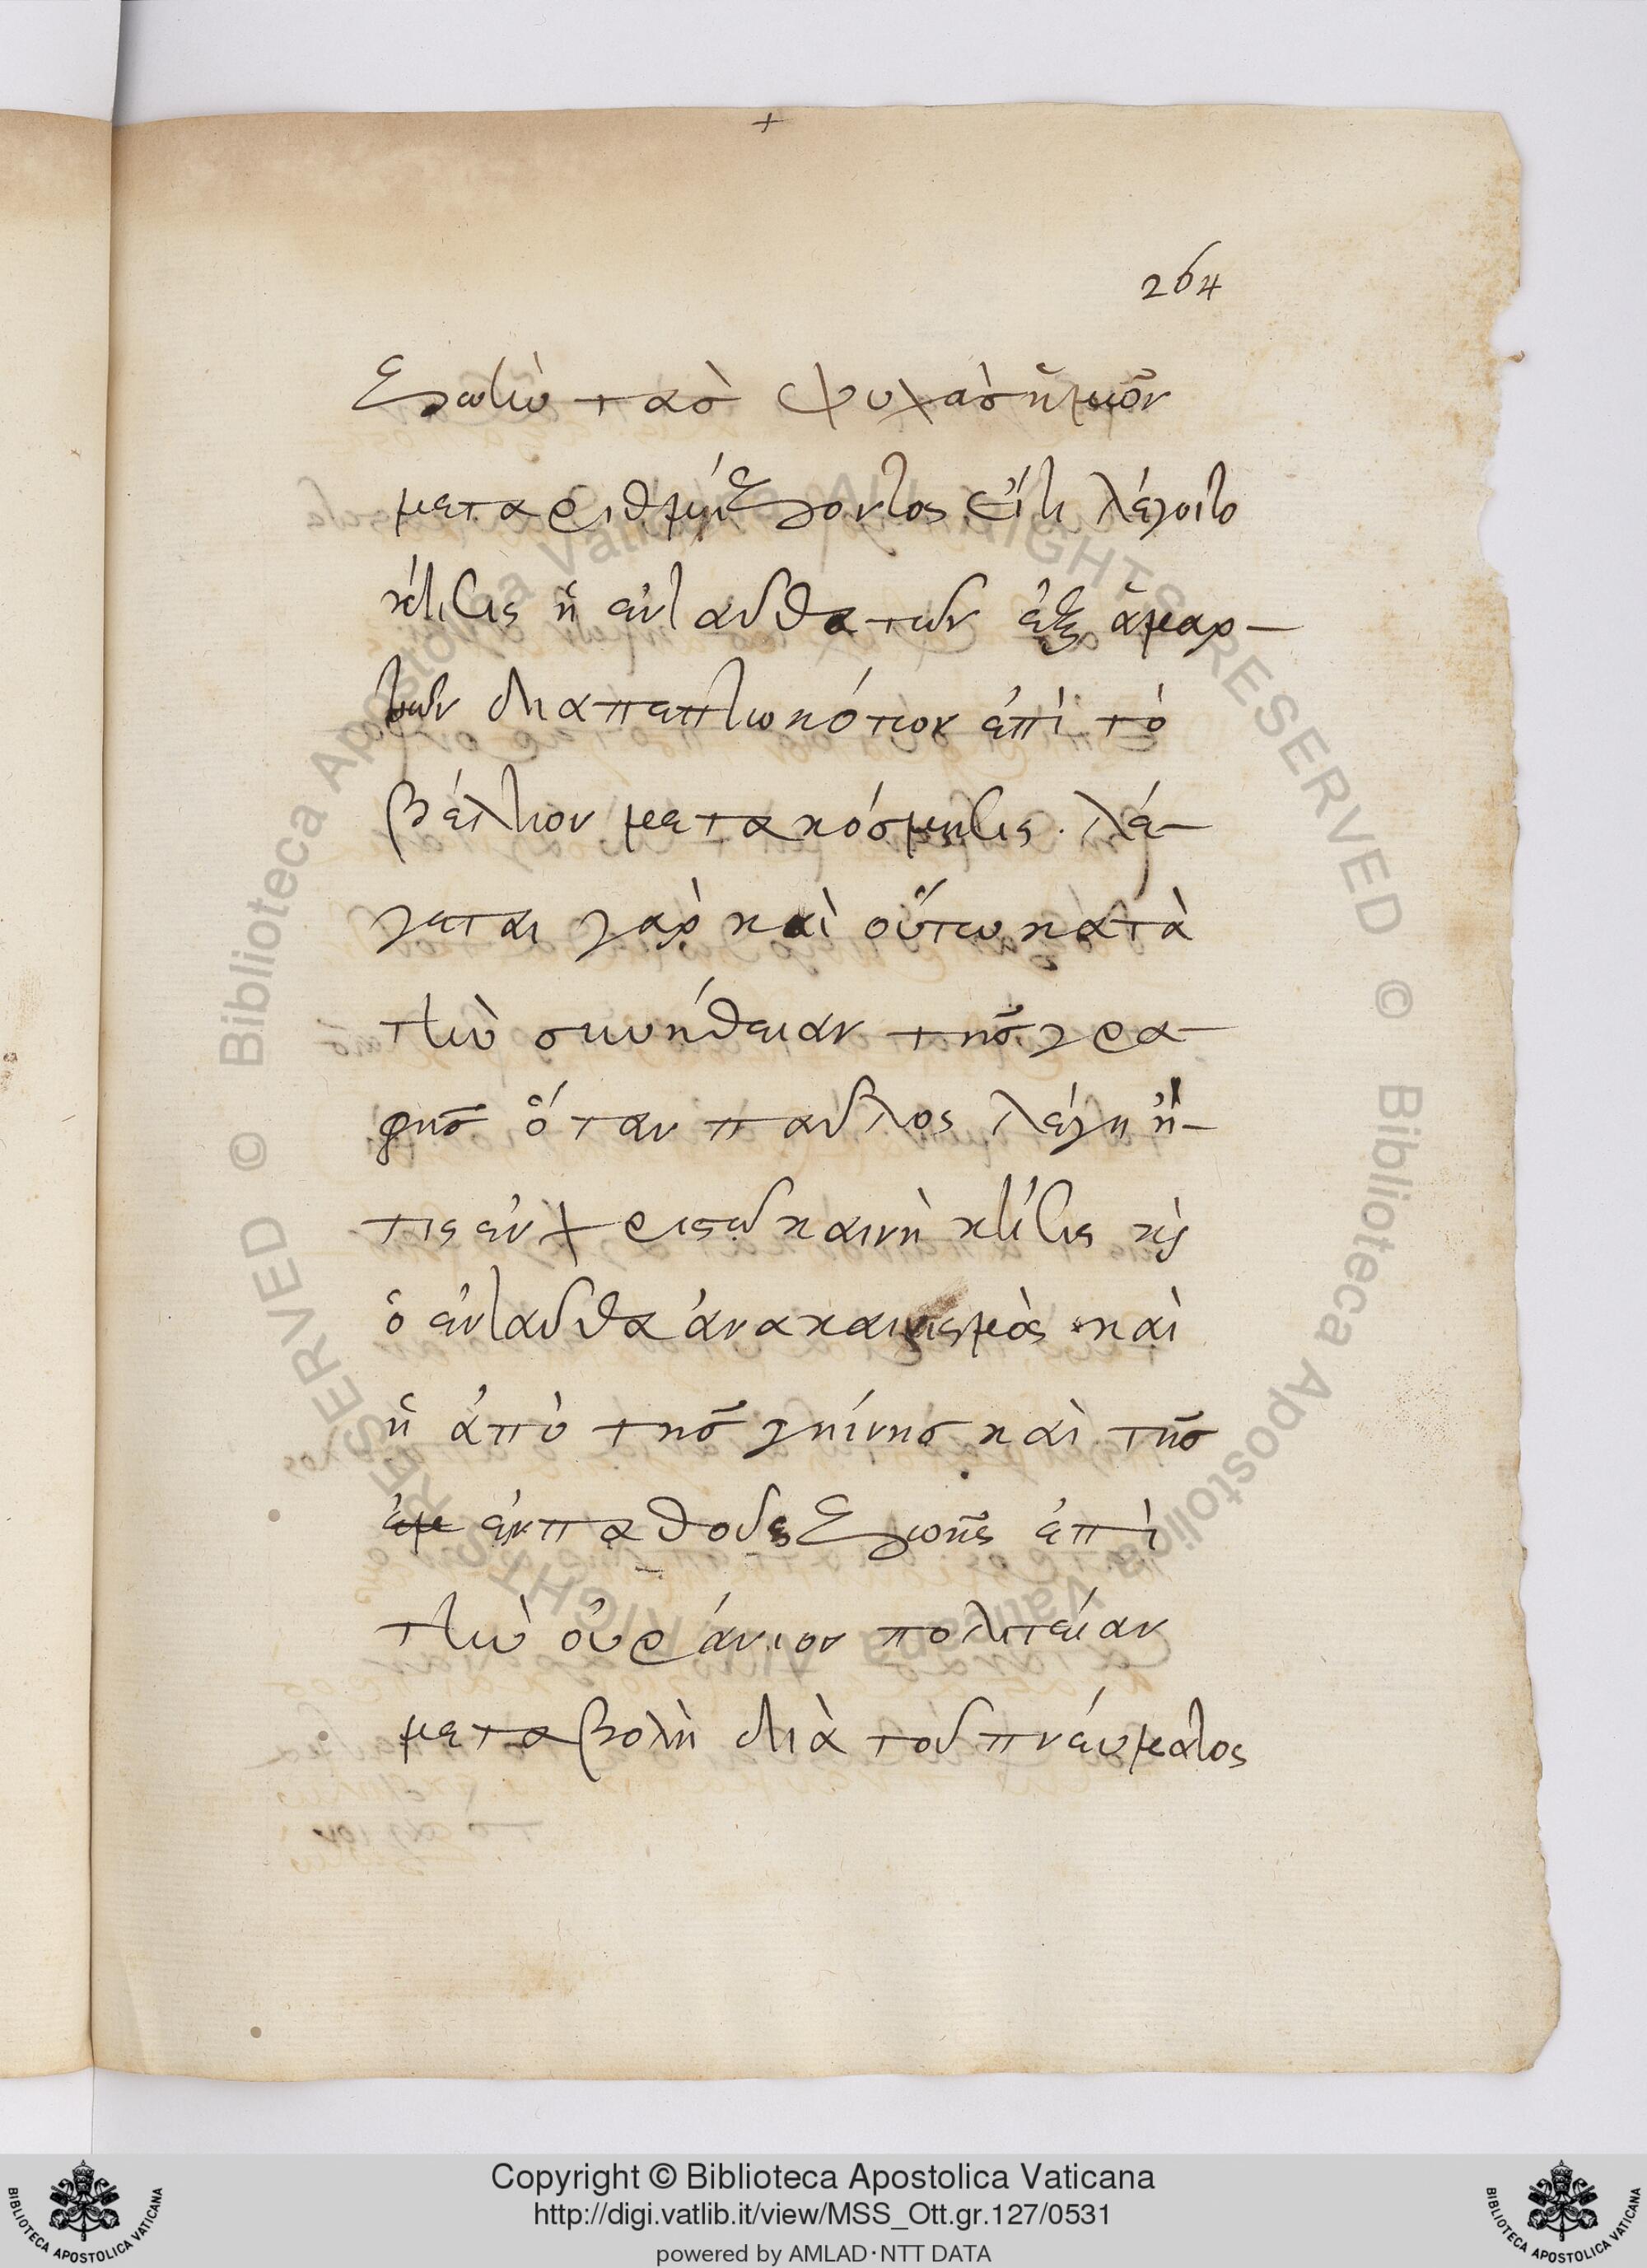 +
264
ζωὴν τὰσ ψυχὰσ ἡμῶν
μεταριθμίζοντος εἴτι λέγοιτο
κτίσις ἡ ἐνταῦθα τῶν ἐξ ἁμαρ-
τιῶν διαπεπτωκότων ἐπὶ τὸ
βέλτιον μετακόσμησις. λέ-
γεται γὰρ καὶ οὕτω κατὰ
τὴν συνήθειαν τῆσ γρα-
φῆσ ὅταν παῦλος λέγη ἤ-
τις ἐν χριστῶ καινὴ κτίσις κὶ
ὁ ἐνταῦθα ἀνακαινισμὸς καὶ
ἡ ἀπὸ τῆσ γηίνησ καὶ τῆσ
ἐμπαθοῦς ζωῆς ἐπὶ
τὴν οὐράνιον πολιτείαν
μεταβολὴ διὰ τοῦ πνεύματος
Copyright © Biblioteca Apostolica Vaticana
http://digi.vatlib.it/view/MSS_Ott.gr.127/0531
powered by AMLAD·NTT DATA
BIBLIOTECA APOSTOLICA VATICANA
BIBLIOTECA APOSTOLICA VATICANA
© Biblioteca Apostolica Vaticana ALL RIGHTS RESERVED © Biblioteca Apostolica Vaticana ALL RIGHTS RESERVED